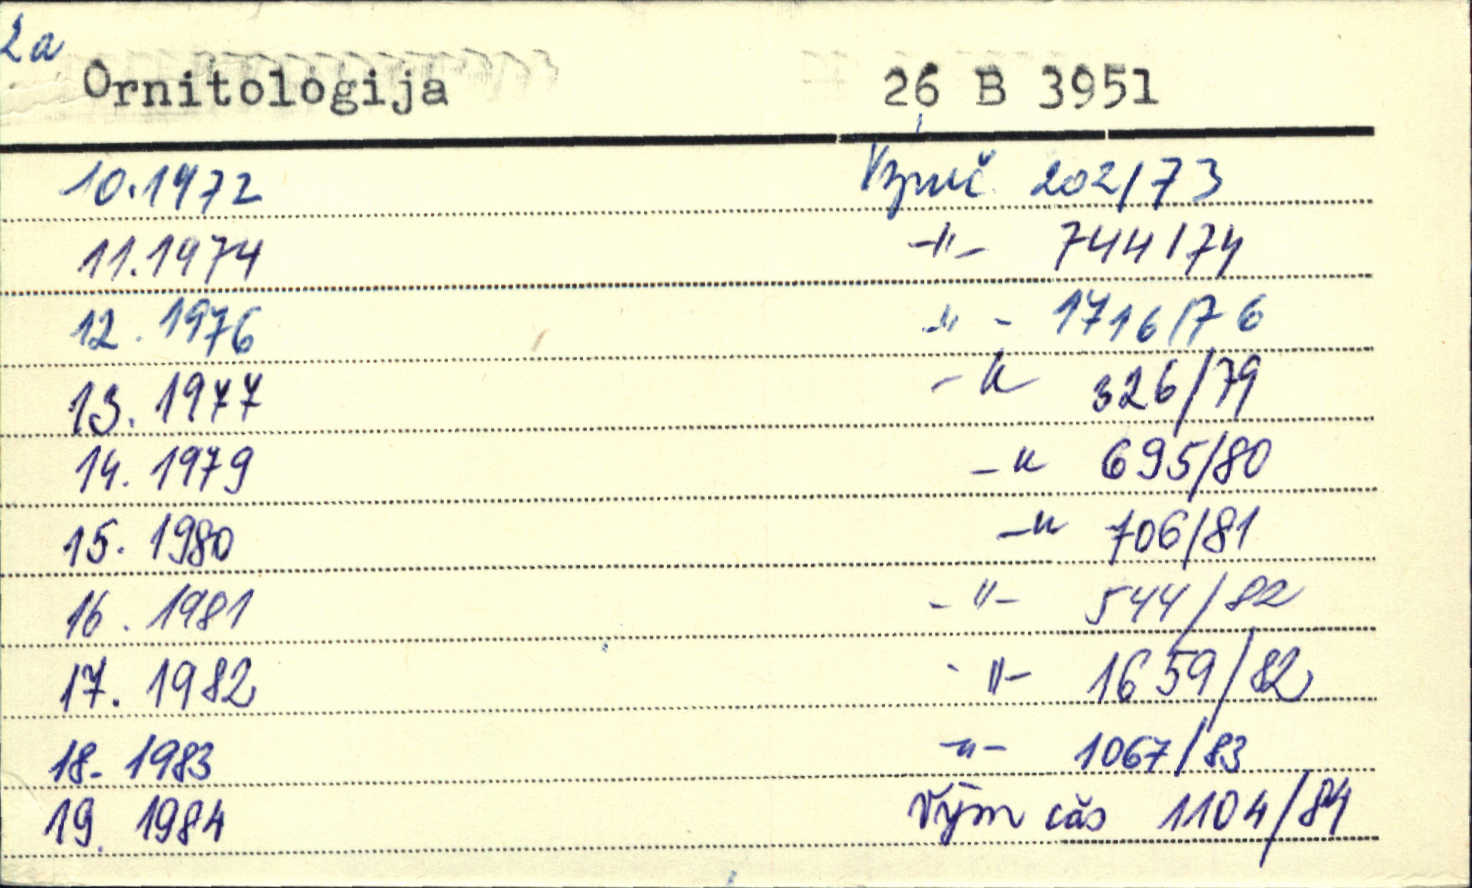 2a
Ornitologija 26 B 3951
10.1972 202/73
11.1974 -"- 744/74
12. 1976 -"- 1716/76
13. 1977 -"- 326/79
14. 1979 -" 695/80
15. 1980 -" 706/81
16. 1981 -"- 544/82
17. 1982 -"- 1659/82
18. 1983 -"- 1067/83
19. 1984 Vým čas 1104/84